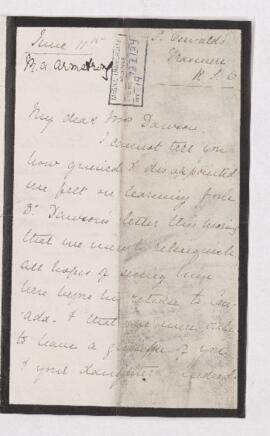 June 11th
M. A. Armstrong
S. Oswald's
Grasmere
My dear Mrs Dawson,
I cannot tell you
how grieved & disappointed
we felt on learning from
Dr Dawson's letter this morning
that we were to relinquish
all hopes of seeing him
here before he returns to Can-
ada. & that we were only
to have a glimpse of you
& your daughter indeed.